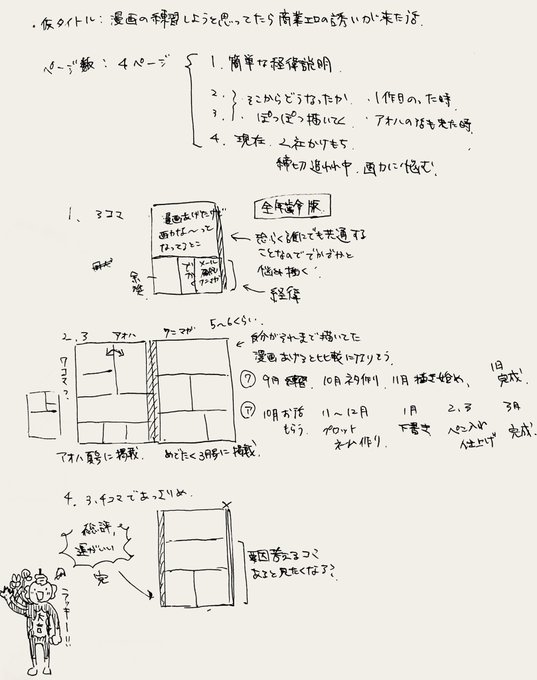 ・仮タイトル：漫画の練習しようと思ってたら商業エロの誘いが来た話.
ページ数：4ページ
1. 簡単な経緯説明
2.
3.
・そこからどうなったか
・ぽつぽつ描いてく
・1作目のった時
・アオハのなも来た時
4. 現在 2社かけもち
締切追われ中. 画力に悩む
1、3コマ
漫画あげたけど
画力な〜って
なってるとこ
全年齢版
恐らく誰にでも共通する
ことなのででかでかと
悩み描く
経緯
余暇
でかく
メール
クニマガ
2.3
アオハ
クニマガ
5〜6くらい.
7コマ?
自分がそれまで描いてた
漫画あげると比較になりそう.
ク 9月 練習. 10月 ネタ作り 11月 描き始め, 1日 完成.
ア 10月お話もらう. 11〜12月 プロットネーム作り. 1月 下書き 2.3 ペン入れ仕上げ 3月 完成.
アオハ夏号に掲載.
めでたく3月号に掲載.
4. 3.4コマであっさりめ.
総評,
運がいい
完
要因考えるコマ
あると見たくなる?
ラッキー!!
大吉